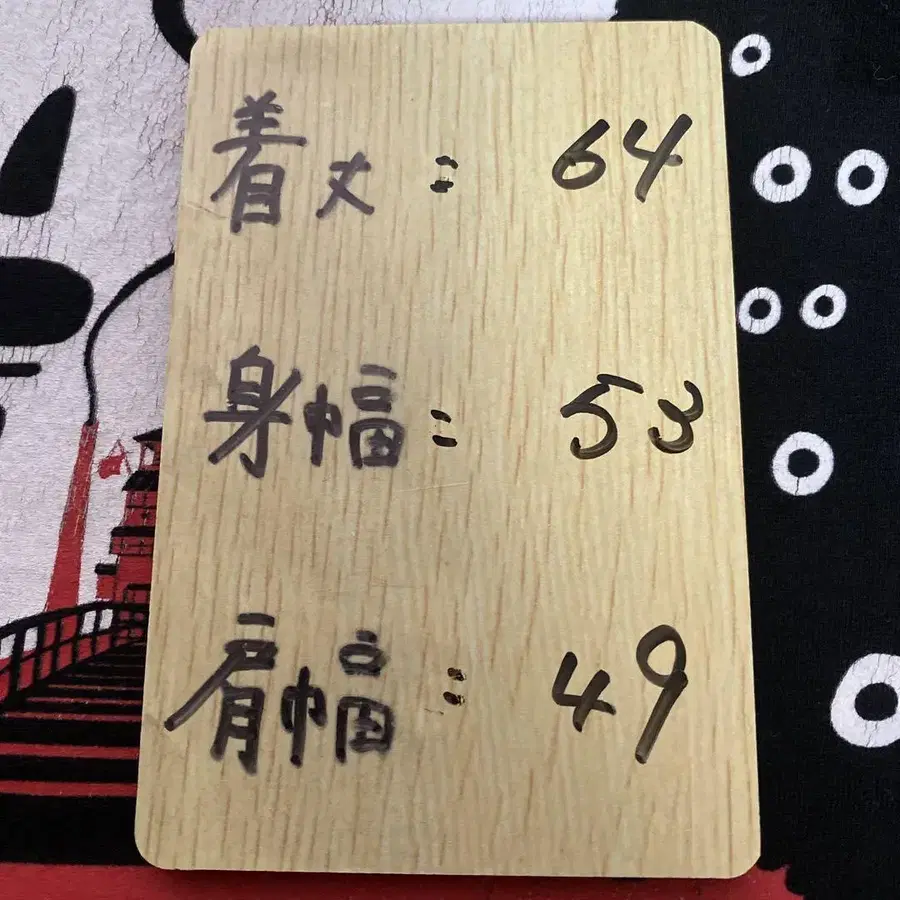 着丈: 64
身幅: 53
肩幅: 49